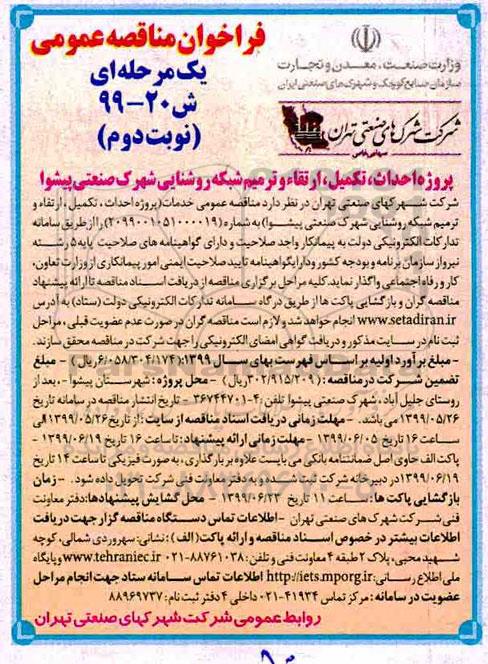 فراخوان مناقصه عمومی
یک مرحله‌ای
ش ۲۰-۹۹
(نوبت دوم)
وزارت صنعت، معدن و تجارت
سازمان صنایع کوچک و شهرک‌های صنعتی ایران
شرکت شهرک‌های صنعتی تهران
سهامی خاص
پروژه احداث، تکمیل، ارتقاء و ترمیم شبکه روشنایی شهرک صنعتی پیشوا
شرکت شهرکهای صنعتی تهران در نظر دارد مناقصه عمومی خدمات (پروژه احداث، تکمیل، ارتقاء و
ترمیم شبکه روشنایی شهرک صنعتی پیشوا) به شماره (۲۰۹۹۰۰۱۰۵۱۰۰۰۰۱۹) را از طریق سامانه
تدارکات الکترونیکی دولت به پیمانکار واجد صلاحیت و دارای گواهینامه های صلاحیت پایه ۵ رشته
نیرو از سازمان برنامه و بودجه کشور و دارا یگواهینامه تایید صلاحیت ایمنی امور پیمانکاری از وزارت تعاون،
کار و رفاه اجتماعی واگذار نماید. کلیه مراحل برگزاری مناقصه از دریافت اسناد مناقصه تا ارائه پیشنهاد
مناقصه گران و بازگشایی پاکت ها از طریق درگاه سامانه تدارکات الکترونیکی دولت (ستاد) به آدرس
www.setadiran.ir انجام خواهد شد و لازم است مناقصه گران در صورت عدم عضویت قبلی، مراحل
ثبت نام در سایت مذکور و دریافت گواهی امضای الکترونیکی را جهت شرکت در مناقصه محقق سازند.
- مبلغ برآورد اولیه بر اساس فهرست بهای سال ۱۳۹۹: (۶/۰۵۸/۳۰۴/۱۷۴ ریال) - مبلغ
تضمین شرکت در مناقصه: (۳۰۲/۹۱۵/۲۰۹ ریال) - محل پروژه: شهرستان پیشوا - بعد از
روستای جلیل آباد، شهرک صنعتی پیشوا تلفن: ۴-۳۶۷۴۴۷۰۱ - تاریخ انتشار مناقصه در سامانه تاریخ
۱۳۹۹/۰۵/۲۶ می باشد. - مهلت زمانی دریافت اسناد مناقصه از سایت: از تاریخ ۱۳۹۹/۰۵/۲۶ الی
ساعت ۱۶ تاریخ ۱۳۹۹/۰۶/۰۵ - مهلت زمانی ارائه پیشنهاد: تا ساعت ۱۶ تاریخ ۱۳۹۹/۰۶/۱۹ -
پاکت الف حاوی اصل ضمانتنامه بانکی می بایست علاوه بر بارگذاری، به صورت فیزیکی تا ساعت ۱۴ تاریخ
۱۳۹۹/۰۶/۱۹ در دبیرخانه شرکت ثبت شده و به دفتر معاونت فنی شرکت تحویل داده شود. - زمان
بازگشایی پاکت ها: ساعت ۱۱ تاریخ ۱۳۹۹/۰۶/۲۳ - محل گشایش پیشنهادها: دفتر معاونت
فنی شرکت شهرک های صنعتی تهران - اطلاعات تماس دستگاه مناقصه گزار جهت دریافت
اطلاعات بیشتر در خصوص اسناد مناقصه و ارائه پاکت (الف): نشانی: سهروردی شمالی، کوچه
شهید محبی، پلاک ۲ طبقه ۴ معاونت فنی و تلفن: ۸۸۷۶۱۰۳۸-۰۲۱ www.tehraniec.ir و پایگاه
ملی اطلاع رسانی: http://iets.mporg.ir اطلاعات تماس سامانه ستاد جهت انجام مراحل
عضویت در سامانه: مرکز تماس ۴۱۹۳۴-۰۲۱ داخلی ۴ دفتر ثبت نام: ۸۸۹۶۹۷۳۷
روابط عمومی شرکت شهرکهای صنعتی تهران